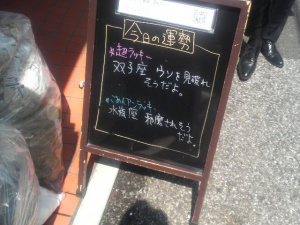 今日の運勢
超ラッキー
双子座 ウソを見破れ
そうだよ。
あんラッキー
水瓶座 邪魔されそう
だよ。